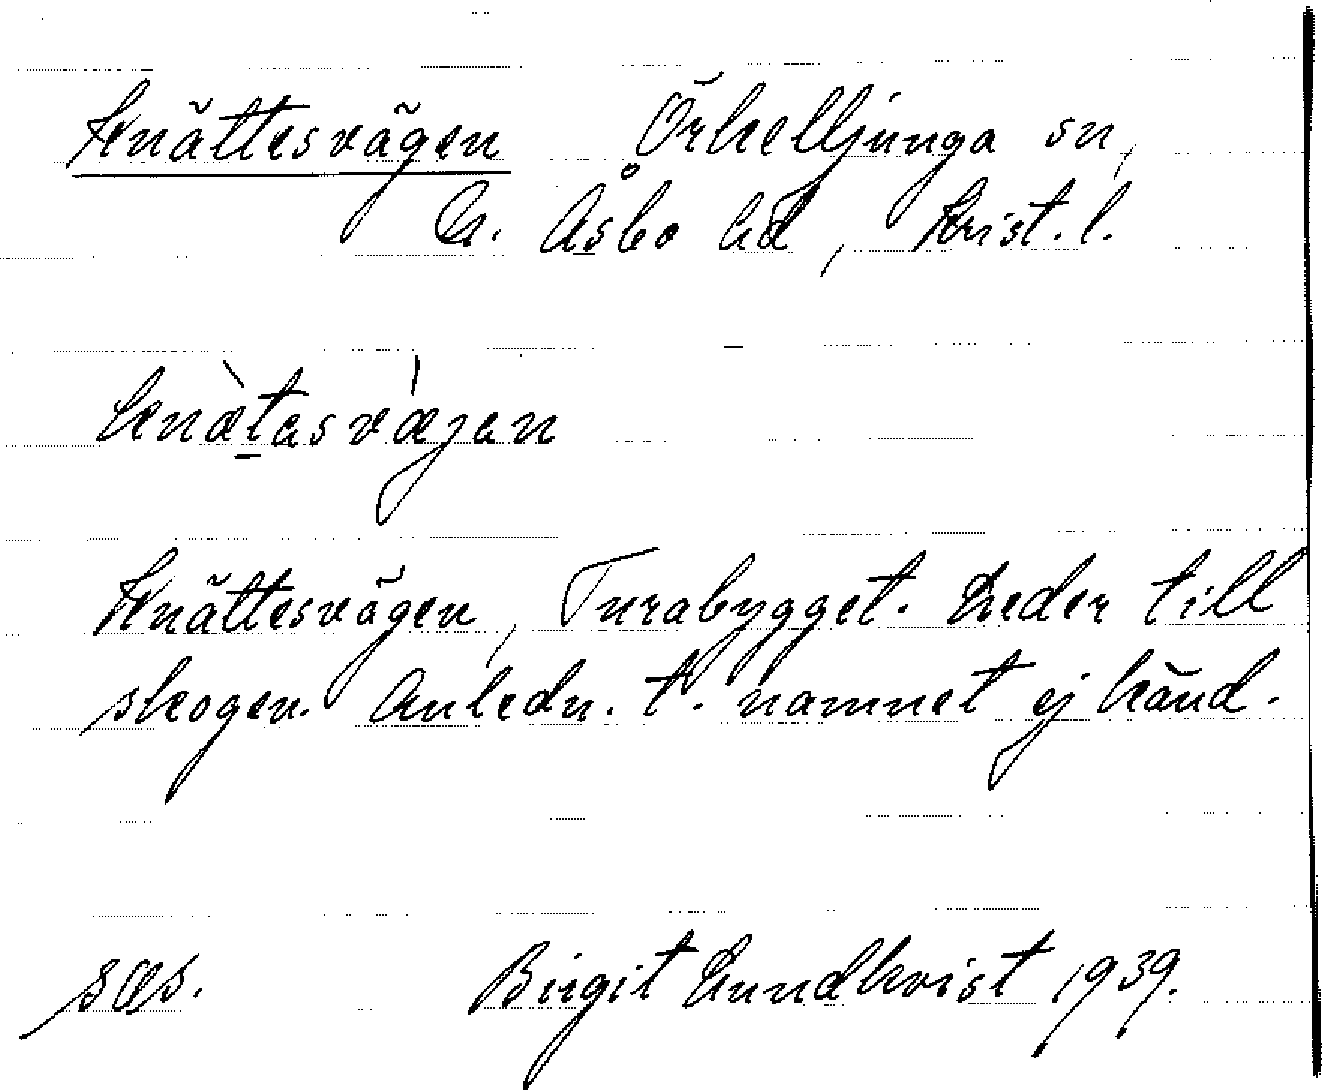 Knättesvägen Örkelljunga sn,
N. Åsbo hd, Krist. l.
knætasvæjan
Knättesvägen, Turabygget. Leder till
skogen. Anledn. t. namnet ej känd.
Birgit Lundkvist 1939.